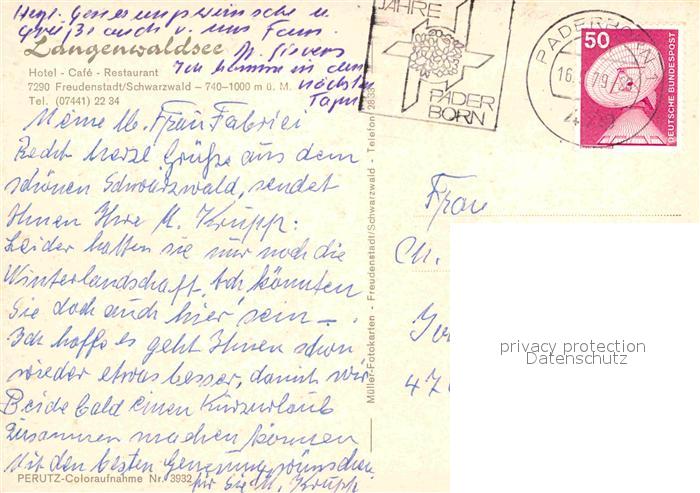 Herzl. Genesungswünsche u.
Grüße auch v. uns Fam.
M. Sievers
Ich komme in den
nächsten
Tagen
Langenwaldsee
Hotel - Café - Restaurant
7290 Freudenstadt/Schwarzwald – 740–1000 m ü. M.
Tel. (07441) 22 34
Meine lb. Frau Fabrici
Recht herzl Grüße aus dem
schönen Schwarzwald, sendet
Ihnen Ihre M. Krupp:
Leider hatten sie nur noch die
Winterlandschaft. Ach könnten
Sie doch auch hier sein –.
Ich hoffe es geht Ihnen schon
wieder etwas besser, damit wir
Beide bald einen Kurzurlaub
zusammen machen können
Mit den besten Genesungswünschen
für Sie M. Krupp
PERUTZ-Coloraufnahme Nr. 3932
Müller-Fotokarten - Freudenstadt/Schwarzwald - Telefon 2853
JAHRE
PADER
BORN
PADERBORN 1
16.
79
50
DEUTSCHE BUNDESPOST
Frau
Ch.
47
privacy protection
Datenschutz